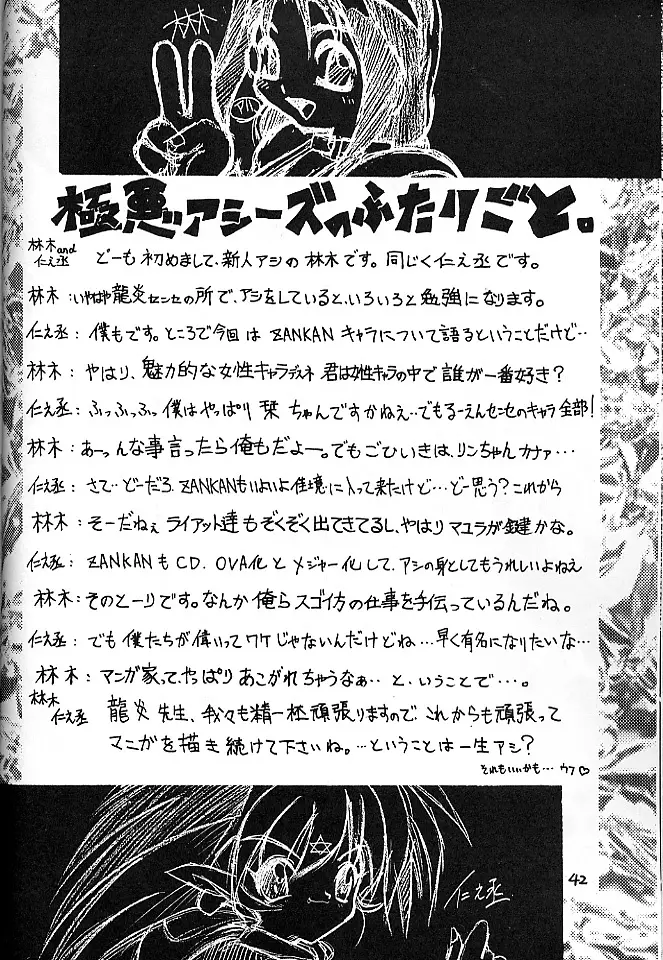 極悪アシーズのふたりごと。
林木and仁え丞 どーも初めまして、新人アシの林木です。同じく仁え丞です。
林木：いやはや龍炎センセの所で、アシをしていると、いろいろと勉強になります。
仁え丞：僕もです。ところで今回は ZANKAN キャラについて語るということだけど…
林木：やはり、魅力的な女性キャラデスネ 君は女性キャラの中で誰が一番好き？
仁え丞：ふっふっふっ僕はやっぱり 栞 ちゃんですかねえ…でもるーえんセンセのキャラ全部！
林木：あーっんな事言ったら俺もだよー。でもごひいきは、リンちゃんカナァ…
仁え丞：さて…どーだろ、ZANKANもいよいよ佳境に入って来たけど…ど一思う？これから
林木：そーだねぇ ライアット達もぞくぞく出てきてるし、やはり マユラが鍵かな。
仁え丞：ZANKANも CD、OVA化と メジャー化して、アシの身としてもうれしいよねえ
林木：そのとーりです。なんか俺らスゴイ方の仕事を手伝っているんだね。
仁え丞：でも僕たちが偉いってワケじゃないんだけどね…早く有名になりたいな…
林木：マンガ家って、やっぱり あこがれちゃうなぁ…と、いうことで…。
林木 仁え丞 龍炎先生、我々も精一杯頑張りますので、これからも頑張って
マンガを描き続けて下さいね。…ということは一生アシ？
それもいいかも… ウフ♡
42
仁え丞